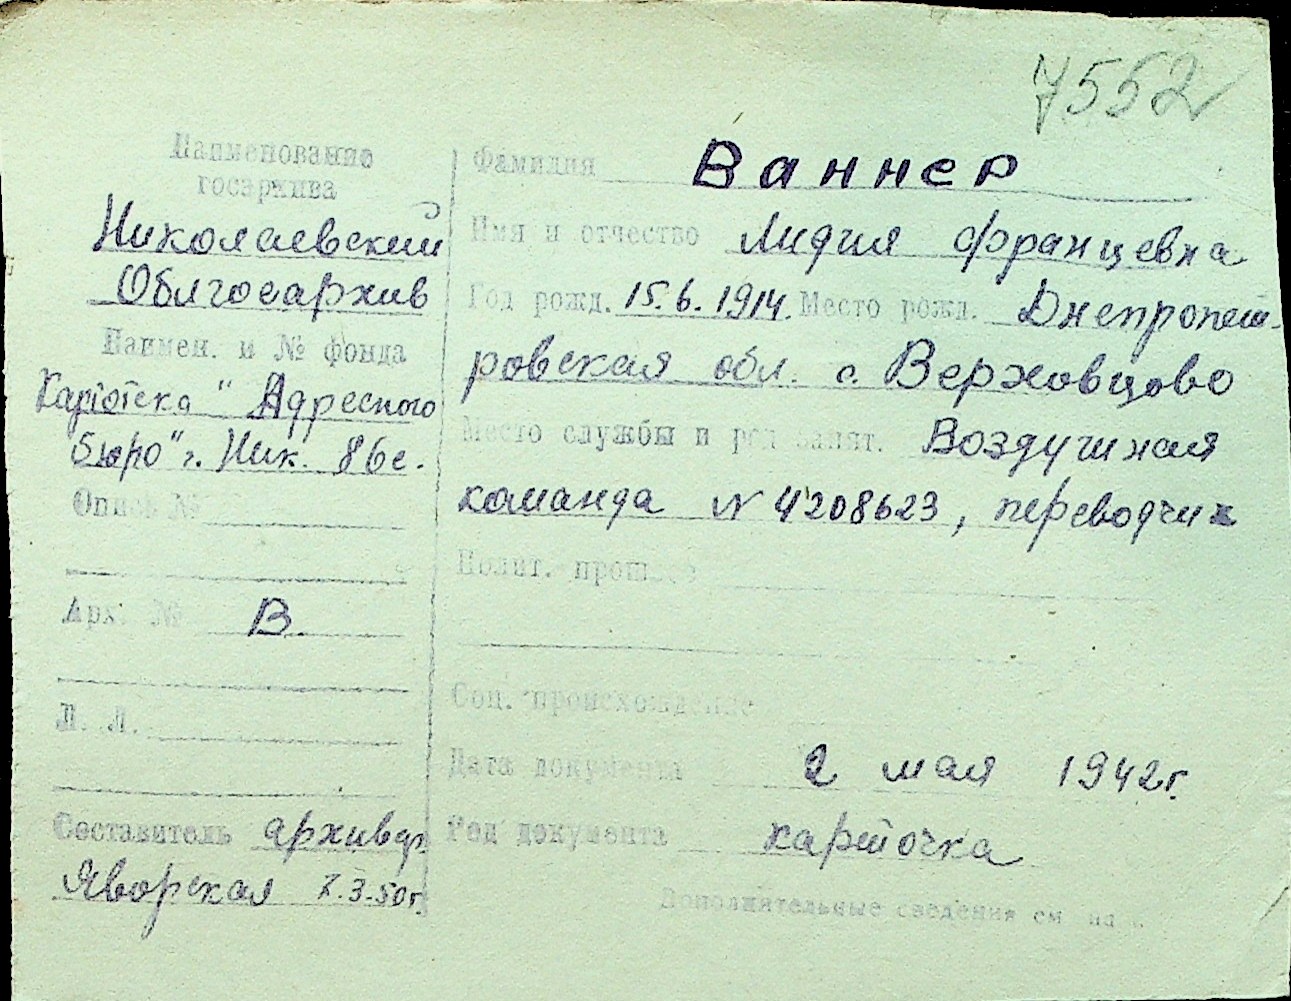 7552
Наименование
госархива
Николаевский
Облгосархив
Наимен. и № фонда
Картотека "Адресного
бюро" г. Ник. 86 е.
Опись №
Арх. № В.
Л. Л.
Составитель архивар.
Яворская 7.3.50г.
Фамилия Ваннер
Имя и отчество Лидия Францевна
Год рожд. 15.6.1914. Место рожд. Днепропет-
ровская обл. с. Верховцово
Место службы и род занят. Воздушная
команда N 4208623, переводчик
Полит. прошлое
Соц. происхождение
Дата документа 2 мая 1942г.
Род документа карточка
Дополнительные сведения см на